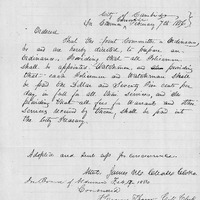 City of Cambridge
In Common Council
February 7th 18
Ordered
That the Joint Committee on Ordinances
be and are hereby directed to prepare an
Ordinance, Providing that all Policemen
shall be appointed Watchmen, and providing
that each Policeman and Watchman shall
be paid One Dollar and Seventy Five cents per
day, in full for all their services, and also
providing that all fees for Warrants and other
services received by them, shall be paid into
the City Treasury
Adopted and sent up for concurrence.
Attest James
Clerk
In Board of Aldermen Feb
Concurred
City Clerk